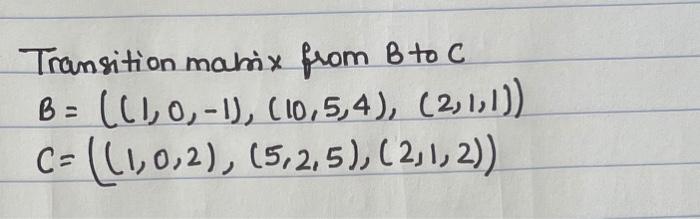 Transition matrix from B to C
B = ((1,0,-1), (10,5,4), (2,1,1))
C= ((1,0,2), (5,2,5), (2,1,2))